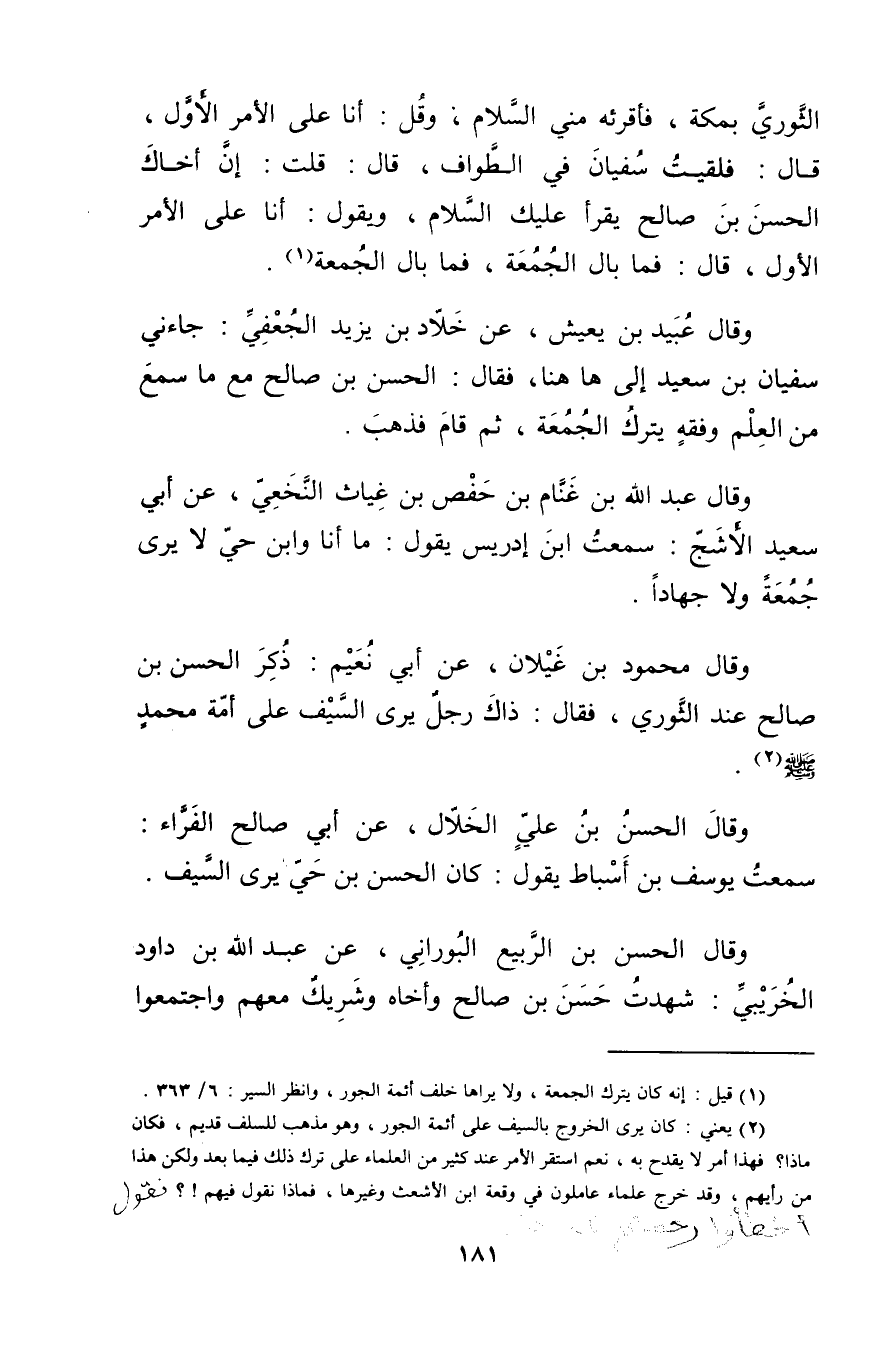 الثَّوريَّ بمكة ، فأقرئه مني السَّلام ، وقُل : أنا على الأمر الأَوَّل ،
قـال : فلقيـتُ سُفيانَ في الـطَّواف ، قال : قلت : إنَّ أخـاكَ
الحسنَ بنَ صالح يقرأ عليك السَّلام ، ويقول : أنا على الأمر
الأول ، قال : فما بال الجُمُعَة ، فما بال الجُمعة(١) .
وقال عُبَيد بن يعيش ، عن خَلّاد بن يزيد الجُعْفِيِّ : جاءني
سفيان بن سعيد إلى ها هنا، فقال : الحسن بن صالح مع ما سمعَ
من العِلْم وفقهٍ يتركُ الجُمُعَة ، ثم قامَ فذهبَ .
وقال عبد الله بن غَنَّام بن حَفْص بن غِياث النَّخَعِيّ ، عن أبي
سعيد الأَشَجّ : سمعتُ ابنَ إدريس يقول : ما أنا وابن حيّ لا يرى
جُمُعَةً ولا جهاداً .
وقال محمود بن غَيْلان ، عن أبي نُعَيْم : ذُكِرَ الحسن بن
صالح عند الثَّوري ، فقال : ذاكَ رجلٌ يرى السَّيْف على أمّة محمدٍ
ﷺ(٢) .
وقالَ الحسنُ بنُ عليٍّ الخَلّال ، عن أبي صالح الفَرَّاء :
سمعتُ يوسف بن أَسْباط يقول : كان الحسن بن حَيّ يرى السَّيف .
وقال الحسن بن الرَّبيع البُورانِي ، عن عبـد الله بن داود
الخُرَيْبيِّ : شهدتُ حَسَنَ بن صالح وأخاه وشَرِيكٌ معهم واجتمعوا
(١) قيل : إنه كان يترك الجمعة ، ولا يراها خلف أئمة الجور ، وانظر السير : ٦/ ٣٦٣ .
(٢) يعني : كان يرى الخروج بالسيف على أئمة الجور ، وهو مذهب للسلف قديم ، فكان
ماذا؟ فهذا أمر لا يقدح به ، نعم استقر الأمر عند كثير من العلماء على ترك ذلك فيما بعد ولكن هذا
من رأيهم ، وقد خرج علماء عاملون في وقعة ابن الأشعث وغيرها ، فماذا نقول فيهم ! ؟ نقول
أخطأوا
١٨١